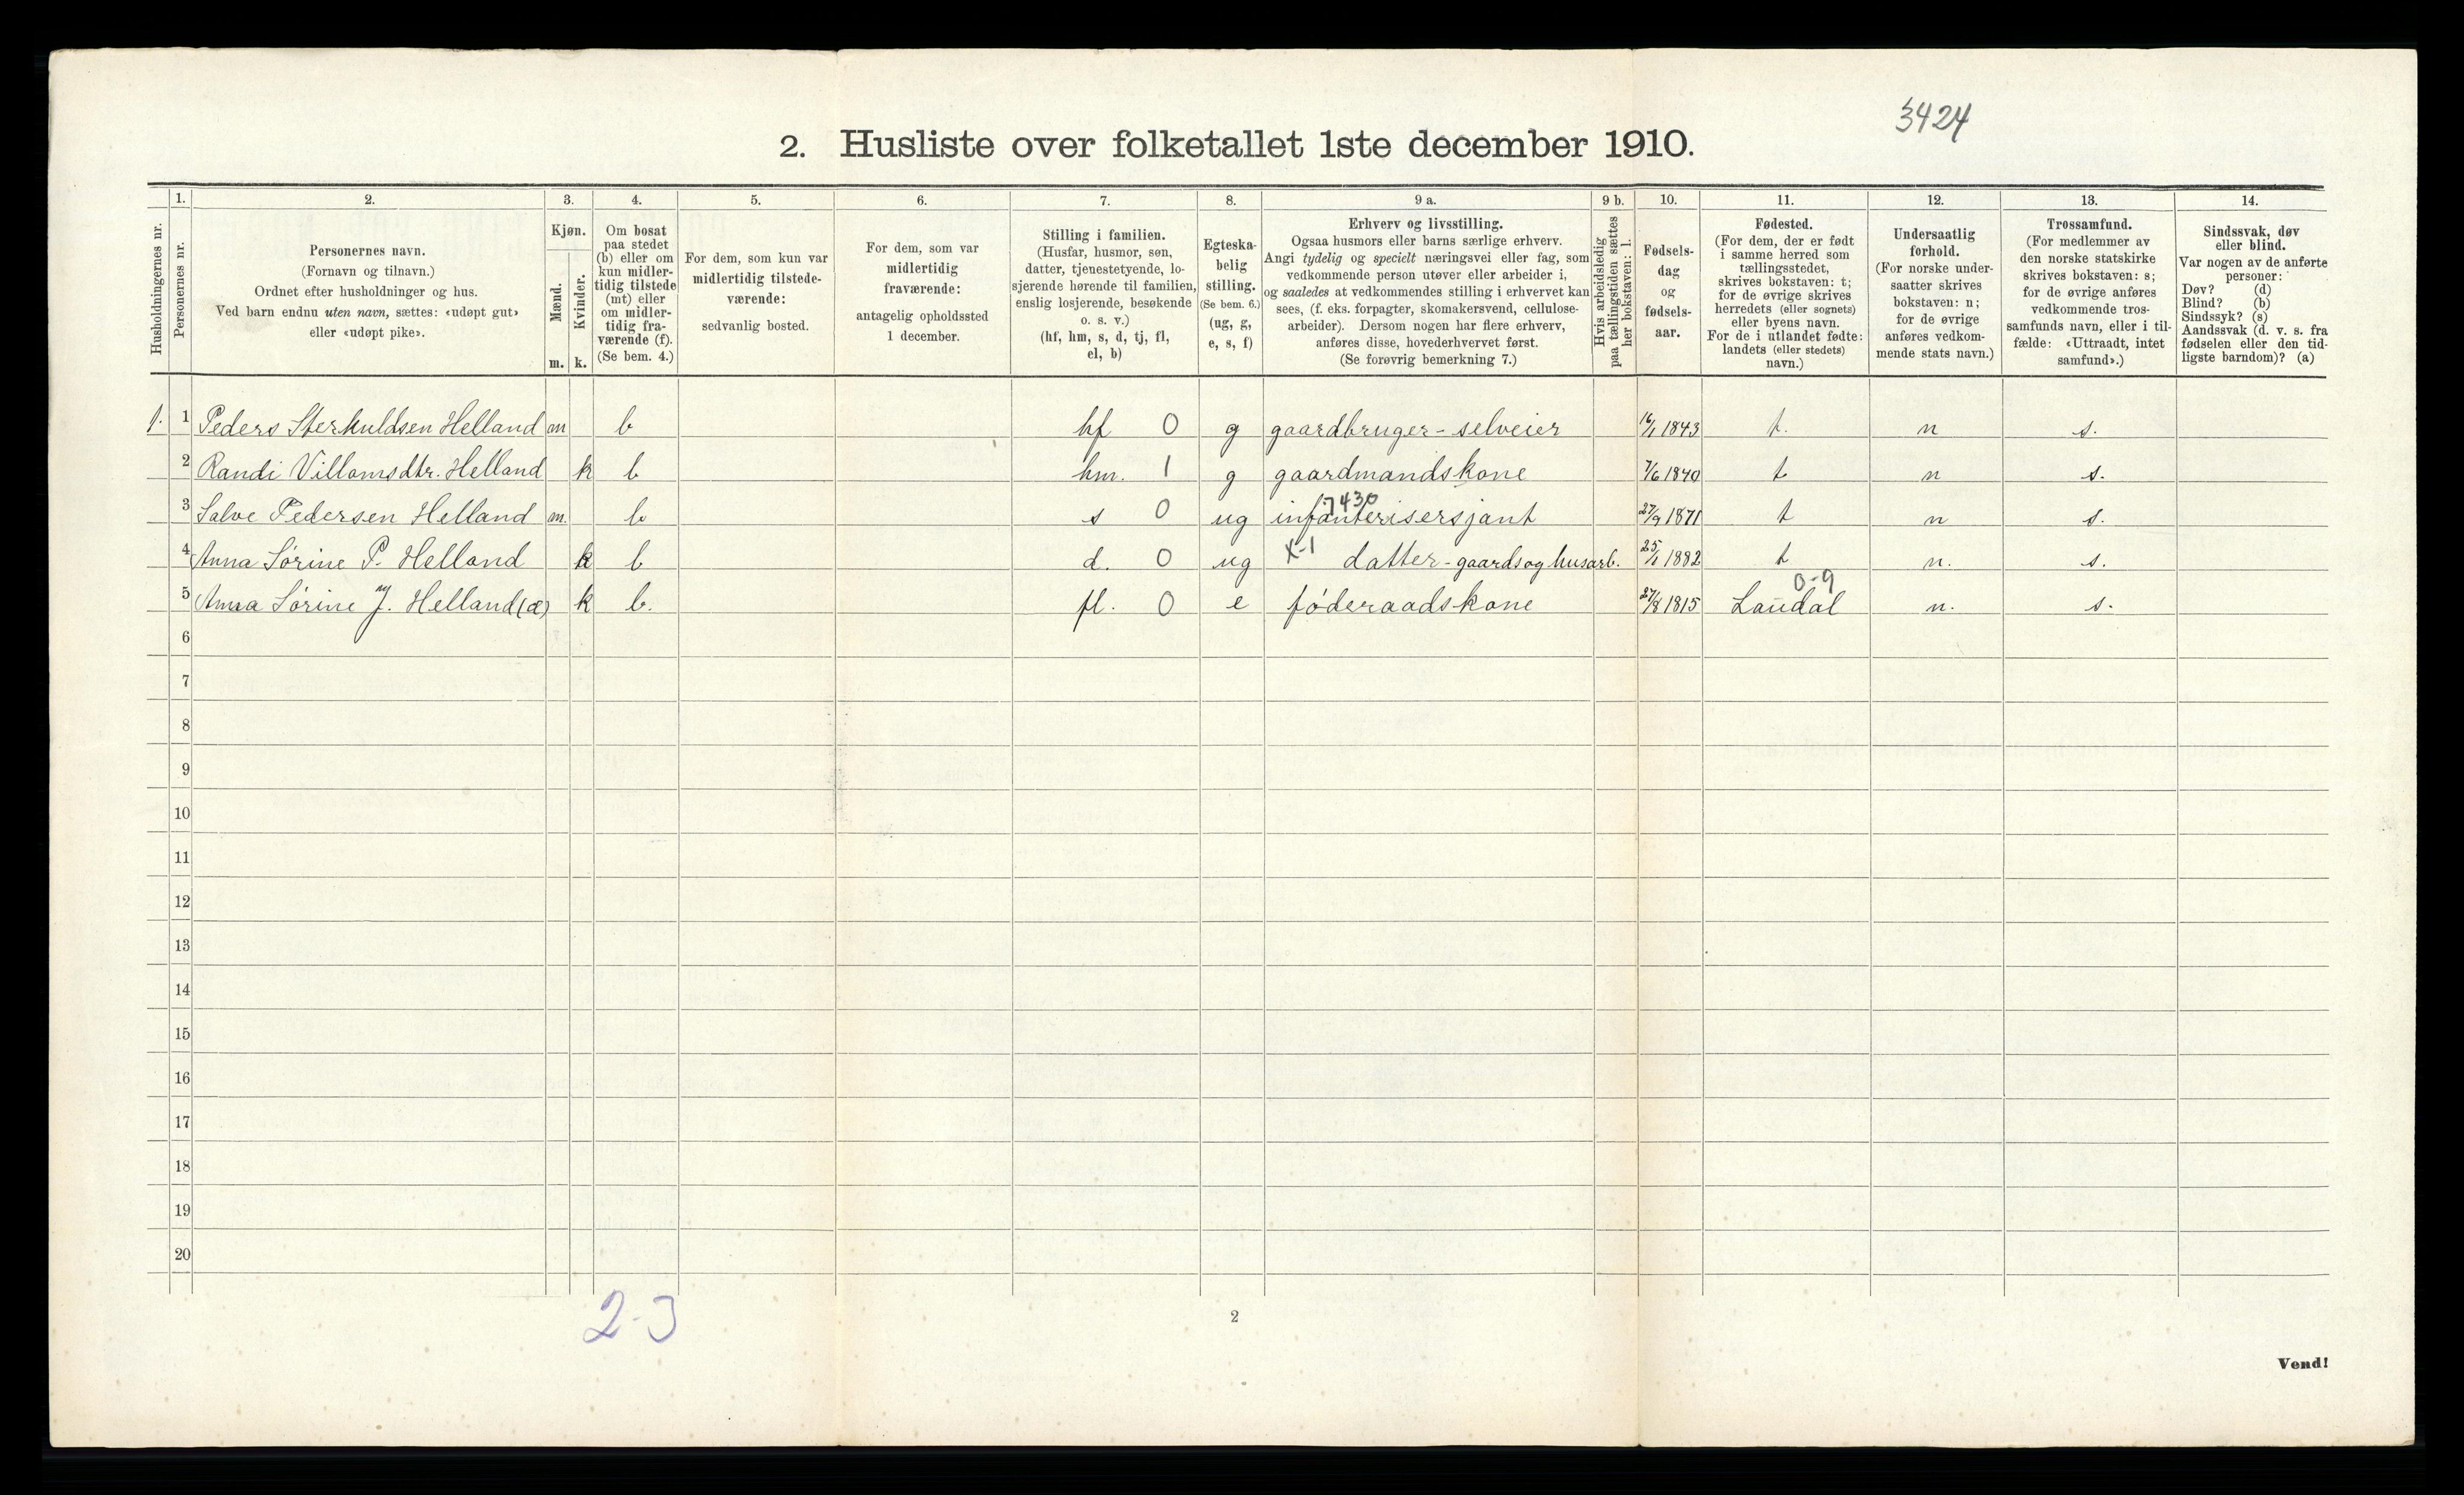 3424
2. Husliste over folketallet 1ste december 1910.
Husholdningernes nr.
1.
Personernes nr.
2.
Personernes navn.
(Fornavn og tilnavn.)
Ordnet efter husholdninger og hus.
Ved barn endnu uten navn, sættes: «udøpt gut»
eller «udøpt pike».
3.
Kjøn.
Mænd.
Kvinder.
m. k.
4.
Om bosat
paa stedet
(b) eller om
kun midler-
tidig tilstede
(mt) eller
om midler-
tidig fra-
værende (f).
(Se bem. 4.)
5.
For dem, som kun var
midlertidig tilstede-
værende:
sedvanlig bosted.
6.
For dem, som var
midlertidig
fraværende:
antagelig opholdssted
1 december.
7.
Stilling i familien.
(Husfar, husmor, søn,
datter, tjenestetyende, lo-
sjerende hørende til familien,
enslig losjerende, besøkende
o. s. v.)
(hf, hm, s, d, tj, fl,
el, b)
8.
Egteska-
belig
stilling.
(Se bem. 6.)
(ug, g,
e, s, f)
9 a.
Erhverv og livsstilling.
Ogsaa husmors eller barns særlige erhverv.
Angi tydelig og specielt næringsvei eller fag, som
vedkommende person utøver eller arbeider i,
og saaledes at vedkommendes stilling i erhvervet kan
sees, (f. eks. forpagter, skomakersvend, cellulose-
arbeider). Dersom nogen har flere erhverv,
anføres disse, hovederhvervet først.
(Se forøvrig bemerkning 7.)
9 b.
Hvis arbeidsledig
paa tællingstiden sættes
her bokstaven: l.
10.
Fødsels-
dag
og
fødsels-
aar.
11.
Fødested.
(For dem, der er født
i samme herred som
tællingsstedet,
skrives bokstaven: t;
for de øvrige skrives
herredets (eller sognets)
eller byens navn.
For de i utlandet fødte:
landets (eller stedets)
navn.)
12.
Undersaatlig
forhold.
(For norske under-
saatter skrives
bokstaven: n;
for de øvrige
anføres vedkom-
mende stats navn.)
13.
Trossamfund.
(For medlemmer av
den norske statskirke
skrives bokstaven: s;
for de øvrige anføres
vedkommende tros-
samfunds navn, eller i til-
fælde: «Uttraadt, intet
samfund».)
14.
Sindssvak, døv
eller blind.
Var nogen av de anførte
personer:
Døv? (d)
Blind? (b)
Sindssyk? (s)
Aandssvak (d. v. s. fra
fødselen eller den tid-
ligste barndom)? (a)
1. 1 Peders Sterkuldsen Helland m b hf 0 g gaardbruger - selveier 16/1 1843 t. n s.
2 Randi Villamsdtr. Helland k b hm. 1 g gaardmandskone 7/6 1840 t n s.
7430
3 Salve Pedersen Helland m. b s 0 ug infanterisersjant 27/9 1871 t n s.
4 Anna Sørine P. Helland k b d. 0 ug X-1 datter - gaards og husarb. 25/1 1882 t n. s.
0-9
5 Anna Sørine J. Helland (æ) k b. fl. 0 e føderaadskone 27/8 1815 Laudal n. s.
6
7
8
9
10
11
12
13
14
15
16
17
18
19
20
2-3
2
Vend!